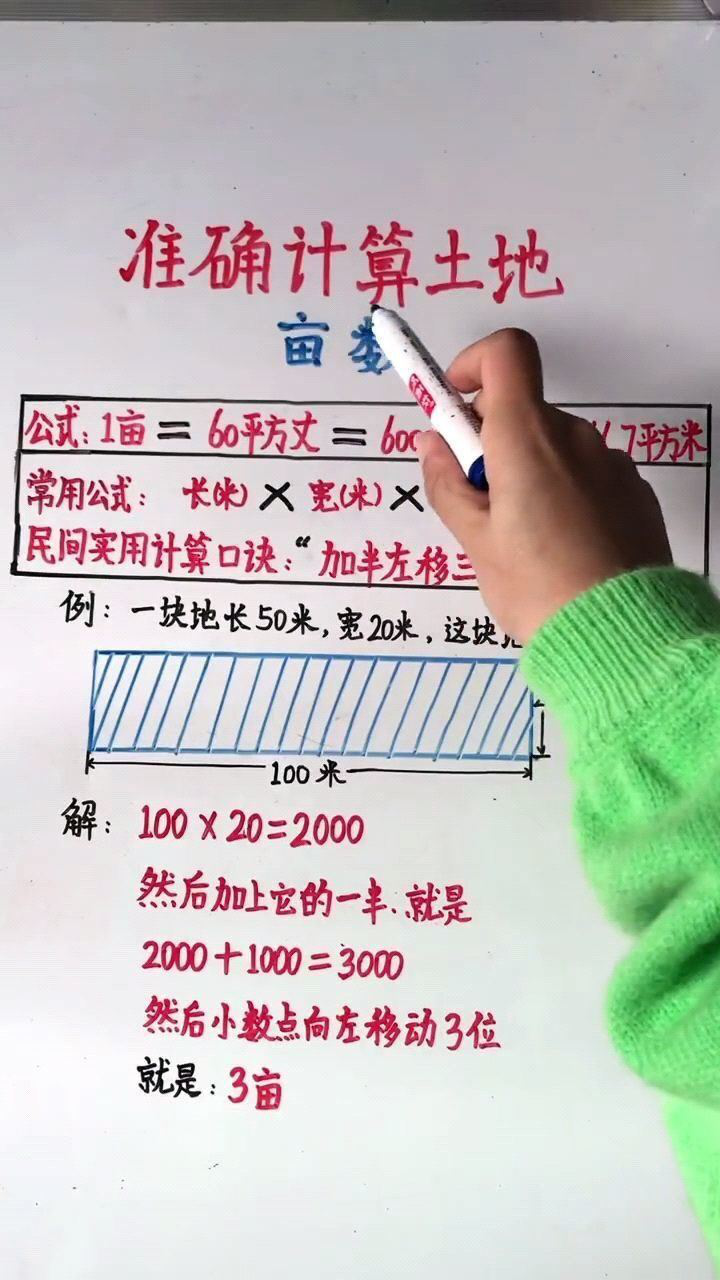 准确计算土地
亩数
公式：1亩＝60平方丈＝600 7平方米
常用公式： 长(米)×宽(米)×
民间实用计算口诀：“加半左移三
例：一块地长50米，宽20米，这块
100米
解：100×20=2000
然后加上它的一半.就是
2000+1000=3000
然后小数点向左移动3位
就是：3亩